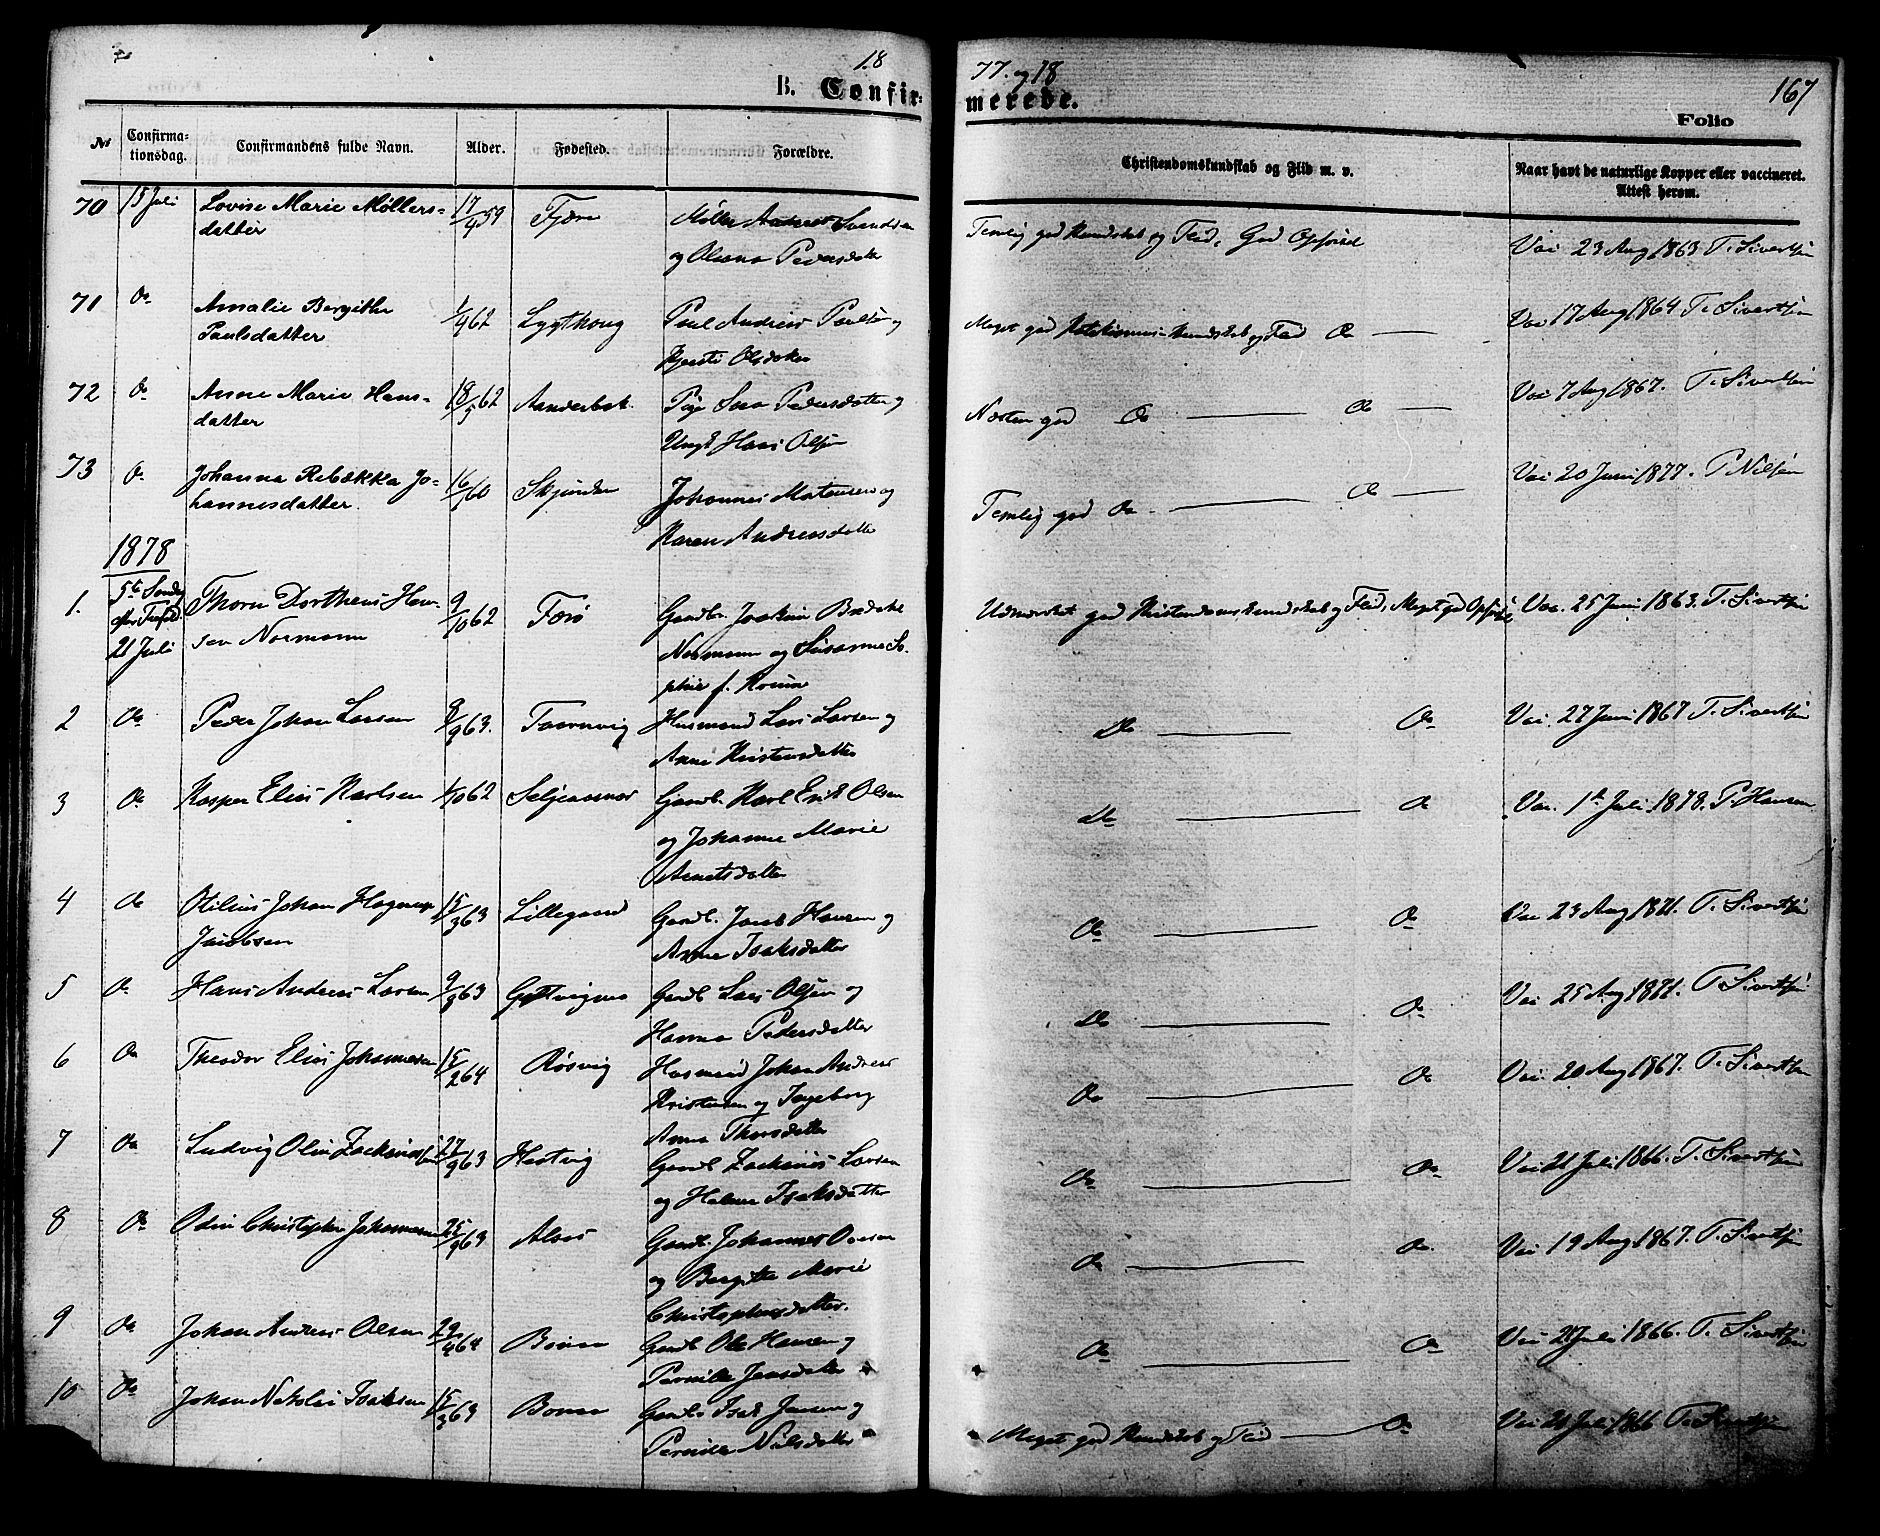 18
77. og 18
167
B. Confir-
merede.
Folio
No
Confirma-
tionsdag.
Confirmandens fulde Navn.
Alder.
Fødested.
Forældre.
Christendomskundskab og Flid m. v.
Naar havt de naturlige Kopper eller vaccineret.
Attest herom.
70 15 Juli Lovise Marie Møllers- 17 Fjære Møller Andreas Svendsen
datter 59 og Olsena Pedersdtr
Temlig god Kundskab og Flid, God Opførsel
Vac 23 Aug 1863 T. Sivertsen
71 Do Amalie Bergithe 62 Lygthoug Paul Andreas Paulsen og
Paulsdatter Kjersti Olsdatter
Meget god Kundskab og Flid Do
Vac 17 Aug 1864 T. Sivertsen
72 Do Anne Marie Hans- 18/5 62 Aanderbak. Pige Pedersdatter og
datter Ungk Hans Olsen
Næsten god Do Do
Vac 7 Aug 1867. T. Sivertsen
73 Do Johanna Rebækka Jo- 16 60 Skjunden Johannes Mortensen og
hannesdatter. Karen Andreasdatter
Temlig god Do Do
Vac 20 Juni 1877. P. Nilsen
1878
1. 5te Søndag Thorn Dortheus Han- 9/10 62 Færø Gaardb. Joakim Bredahl
21 Juli sen Normann Normann og Susanne So-
phie f.
Udmærket god Kristendomskundskab og Flid, Meget god Opførsel
Vac. 25 Juni 1863. T. Sivertsen
2 Do Peder Johan Larsen 8/9 63. Taarnvig Husmand Lars Larsen og
Anne Kristensdatter
Do Do
Vac. 27 Juni 1867 T. Sivertsen
3 Do Kasper Elias Karlsen 10 62 Seljeasnas Gaardb. Karl Erik Olsen
og Johanna Marie
Arntsdatter
Do Do
Vac. 1ste Juli 1878. P. Hansen
4 Do Otilius Johan Hagerup 15/3 63 Lillegaard Gaardb. Jacob Hansen og
Jacobsen Anne Isaksdatter
Do Do
Vac 23 Aug 1871. T. Sivertsen
5 Do Hans Andreas Larsen 9 63 Gaardb Lars Olsen og
Hanna Pedersdatter
Do Do
Vac 25 Aug 1871. T. Sivertsen
6 Do Theodor Elias Johannesen 15/2 64 Røsvig Husmand Johan Andreas
Kristensen og Ingeborg
Anna Thorsdatter
Do Do
Vac. 20 Aug 1867. T. Sivertsen
7 Do Ludvig Olin Zachariassen 27/9 63 Hestvig Gaardb Zacharias Larsen
og Helene Isaksdatter
Do Do
Vac 21 Juli 1866. T. Sivertsen
8 Do Odin Christopher Johannesen 25/9 63 Alvis Gaardb. Johannes
og Bergitte Marie
Christophersdatter.
Do Do
Vac 19 Aug 1867. T. Sivertsen
9 Do Johan Andreas Olsen 29/4 64 Bonaa Gaardb Ole Hansen og
Pernille Jensdatter
Do Do
Vac 21 Juli 1866. T. Sivertsen
10 Do Johan Nikolai Isaksen 15/3 63 Bonaa Gaardb Isak Jensen og
Pernille Nilsdatter
Meget god Kundskab og Flid Do
Vac 21 Juli 1866 T. Sivertsen